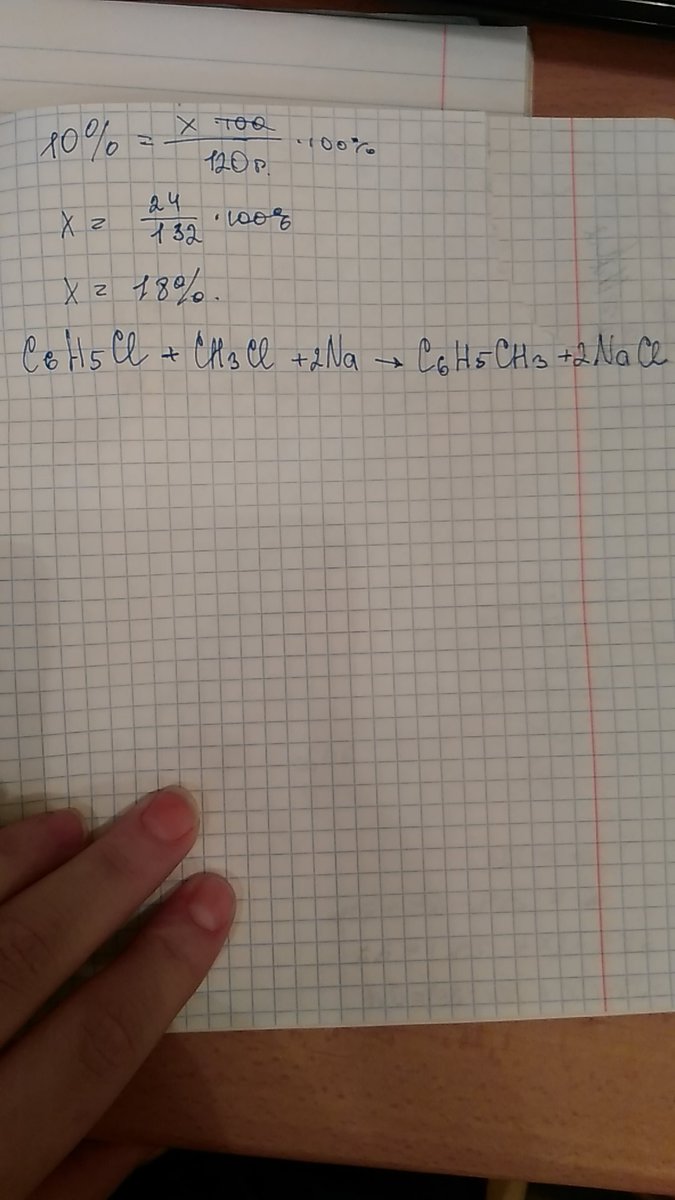 10% = x ~~100~~ / 120г. · 100%
x = 24 / 132 · 100%
x = 18%.
C6H5Cl + CH3Cl + 2Na → C6H5CH3 + 2NaCl